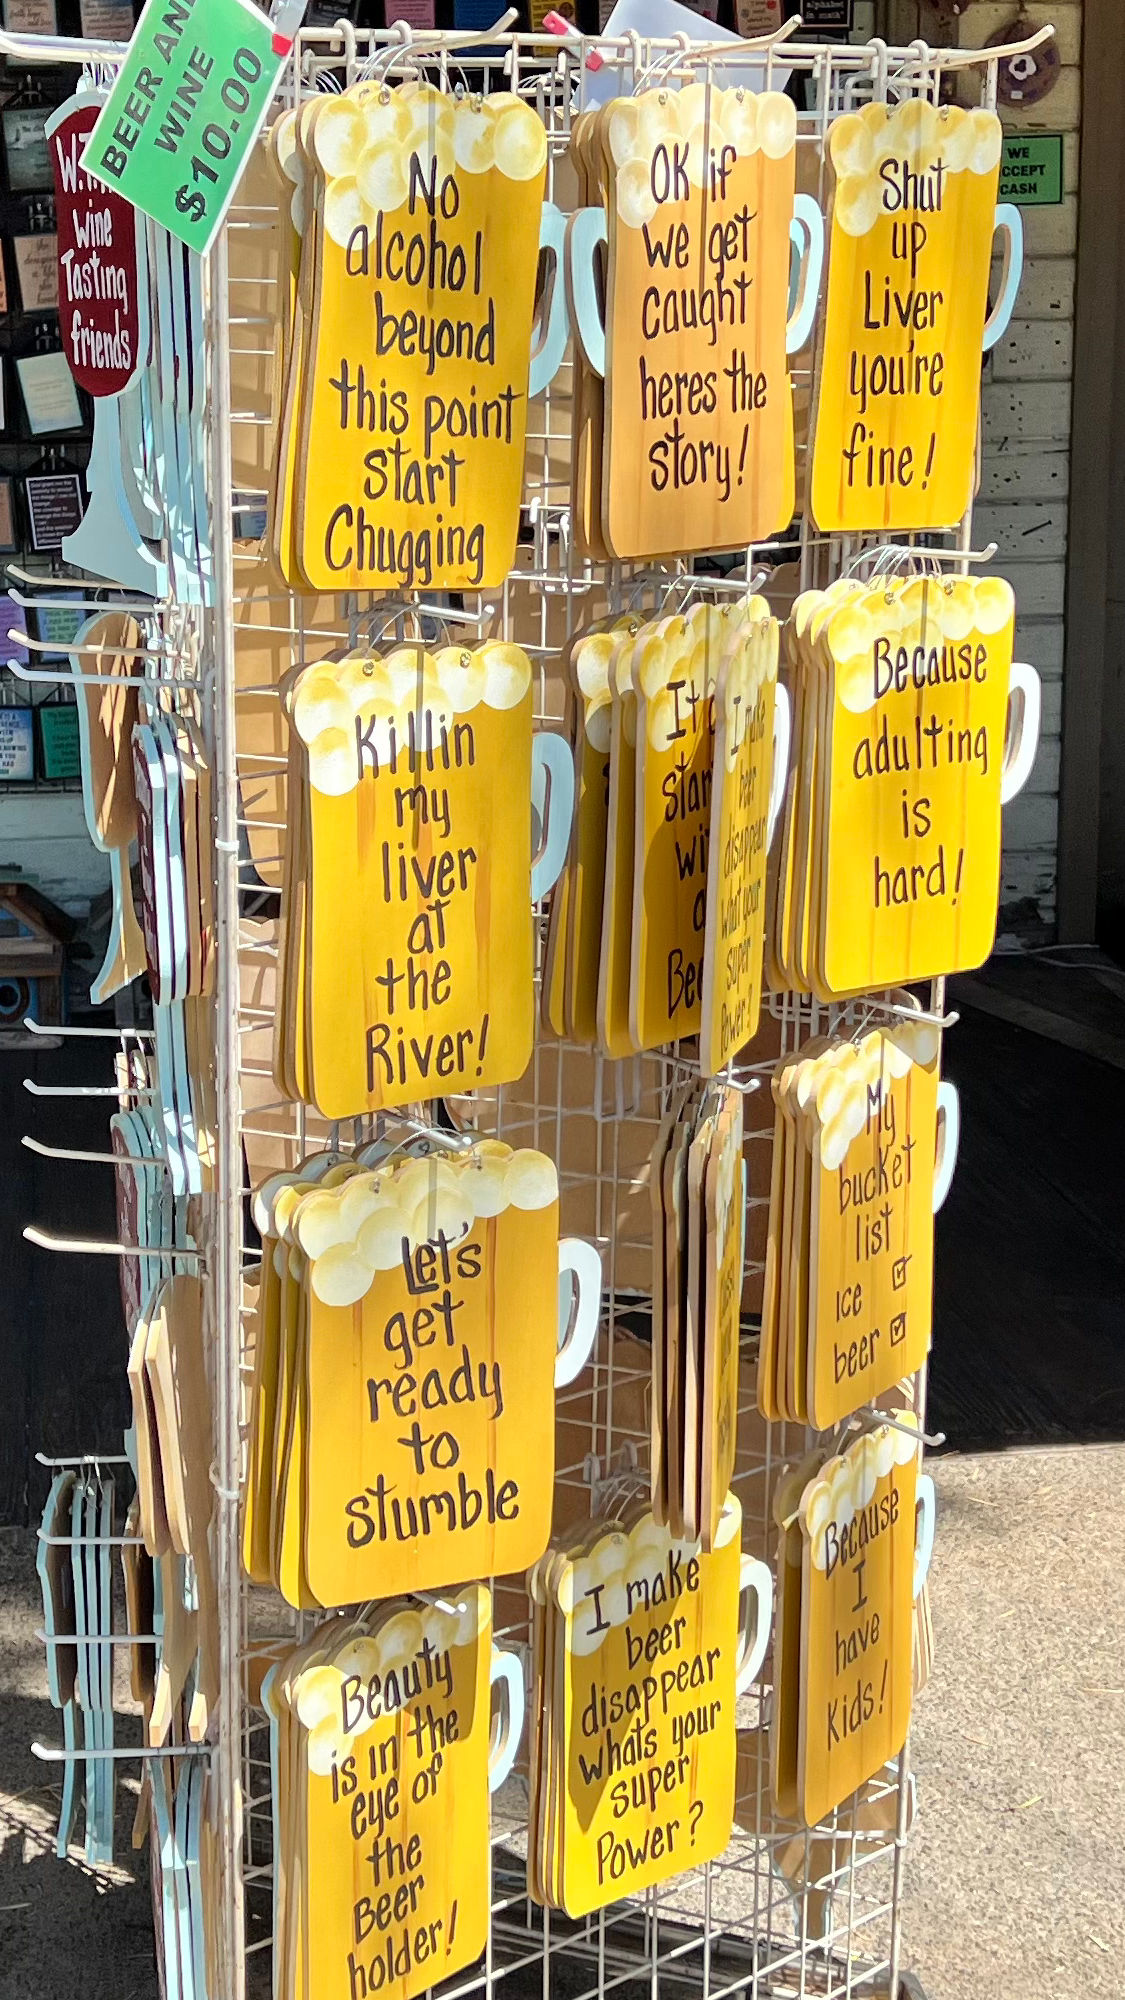 BEER AND
WINE
$10.00
Wine
Tasting
friends
No
alcohol
beyond
this point
start
Chugging
OK if
we get
caught
heres the
story!
Shut
up
Liver
you're
fine!
WE
ACCEPT
CASH
Killin
my
liver
at
the
River!
I make
beer
disappear
what your
super
Power?
Because
adulting
is
hard!
Let's
get
ready
to
stumble
My
bucket
list
ice ☑
beer ☑
Beauty
is in the
eye of
the
Beer
holder!
I make
beer
disappear
whats your
super
Power?
Because
I
have
Kids!